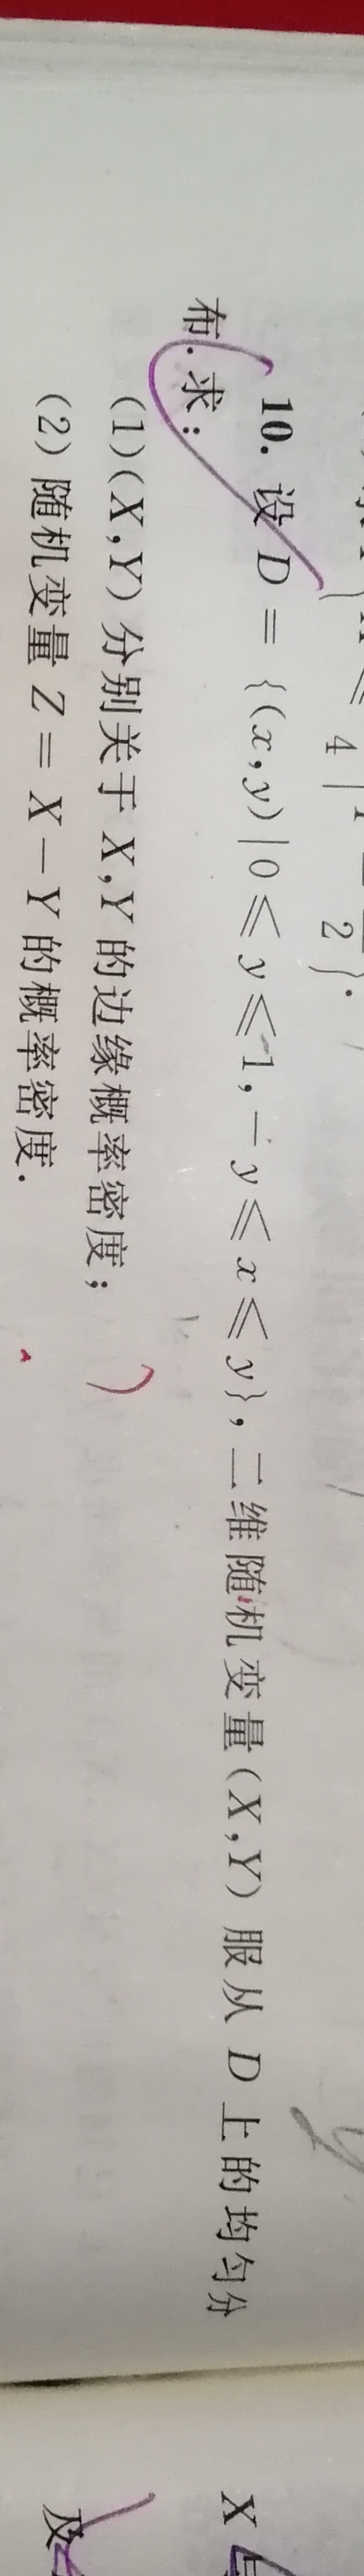 4
2 } .
10. 设 D = {(x,y) | 0 ⩽ y ⩽ 1, −y ⩽ x ⩽ y}, 二维随机变量(X,Y) 服从 D 上的均匀分
布. 求:
(1)(X,Y) 分别关于 X,Y 的边缘概率密度;
(2) 随机变量 Z = X − Y 的概率密度.
X
及